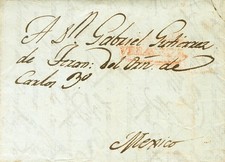 A Sr. Gabriel Gutierrez
de Teran: del Orn. de
Carlos 3º
Mexico